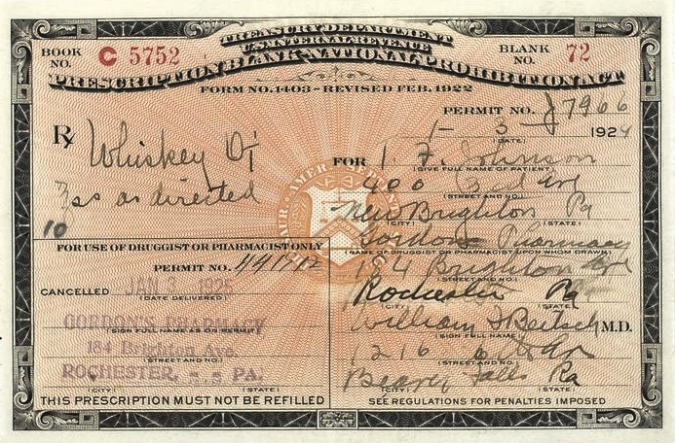 TREASURY DEPARTMENT
U.S. INTERNAL REVENUE
BOOK NO. C 5752
BLANK NO. 72
PRESCRIPTION BLANK-NATIONAL PROHIBITION ACT
FORM NO. 1403-REVISED FEB. 1922
PERMIT NO. 7966
Rx
1-3- 1924
(DATE)
Whiskey
FOR I. F. Johnson
(GIVE FULL NAME OF PATIENT)
ss as directed
400
(STREET AND NO.)
10
New Brighton Pa
(CITY) (STATE)
Gordons Pharmacy
(NAME OF DRUGGIST OR PHARMACIST UPON WHOM DRAWN)
184 Brighton
(STREET AND NO.)
Rochester Pa
(CITY) (STATE)
William J Reitsch M.D.
(SIGN FULL NAME)
1216
(STREET AND NO.)
Beaver Falls Pa
(CITY) (STATE)
FOR USE OF DRUGGIST OR PHARMACIST ONLY
PERMIT NO.
CANCELLED JAN 3 1925
(DATE DELIVERED)
GORDON'S PHARMACY
(SIGN FULL NAME AS ON PERMIT)
184 Brighton Ave.
(STREET AND NO.)
ROCHESTER, PA.
(CITY) (STATE)
THIS PRESCRIPTION MUST NOT BE REFILLED
SEE REGULATIONS FOR PENALTIES IMPOSED